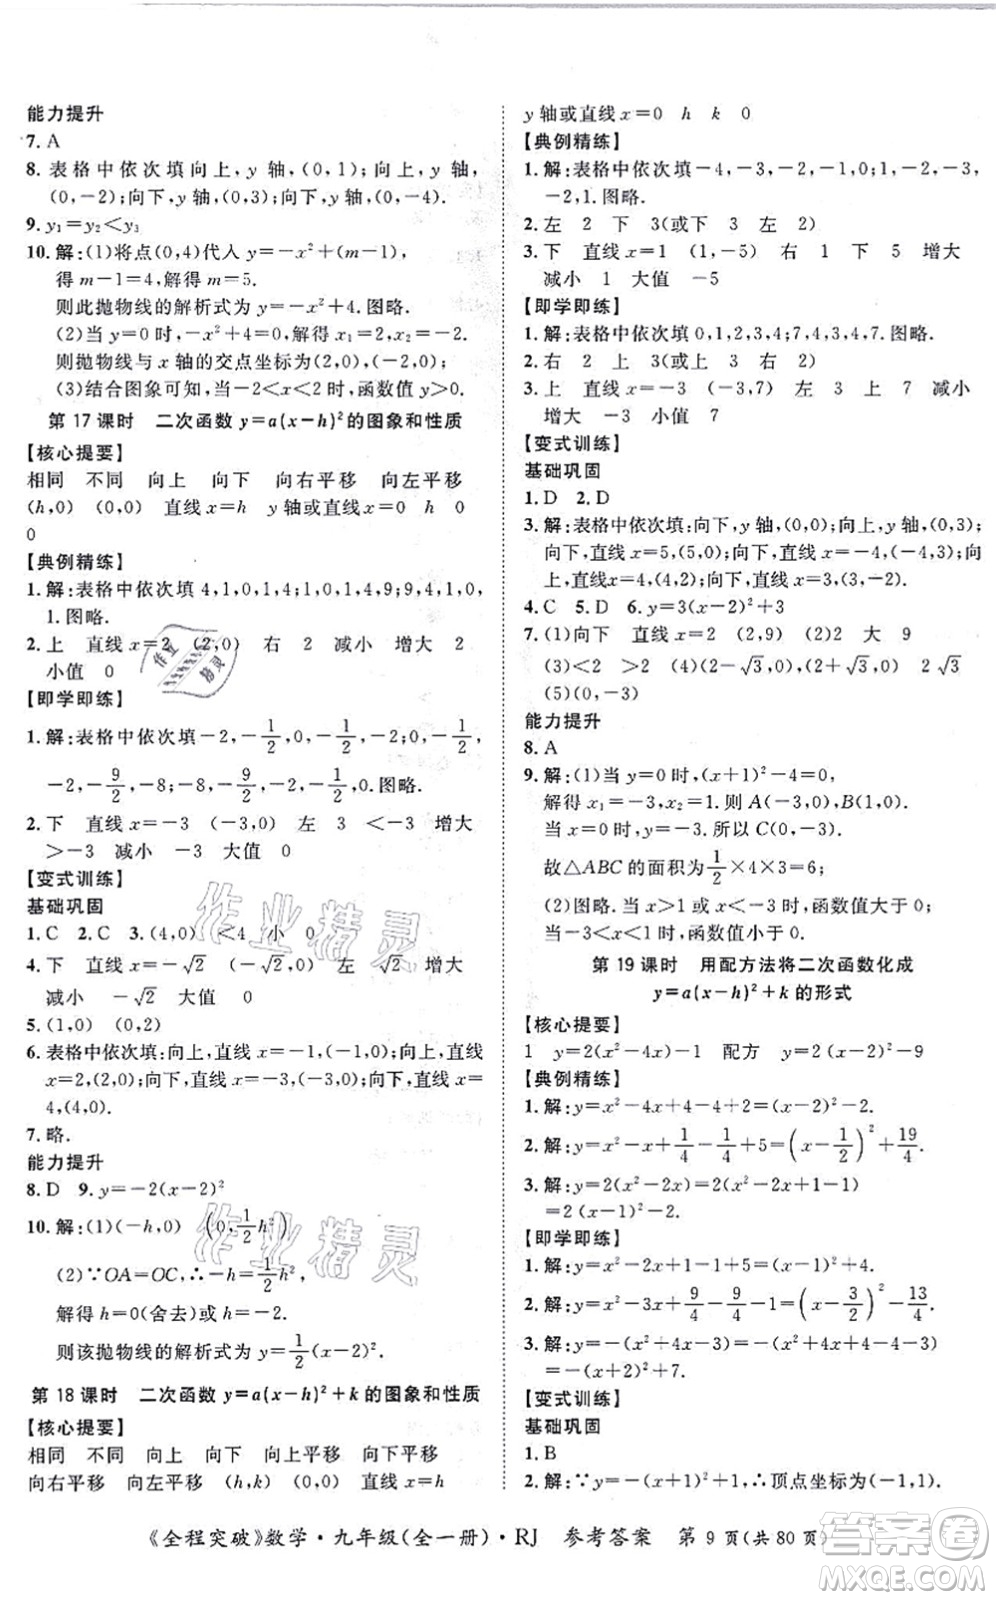 能力提升
7. A
8. 表格中依次填向上,y 轴,(0,1);向上,y轴,
(0,-2);向下,y 轴,(0,2);向下,y轴,(0,-4).
9. y₁=y₂<y₃
10. 解:(1)将点(0,4)代入 y=-x²+(m-1),
得 m-1=4,解得 m=5.
则此抛物线的解析式为 y=-x²+4.图略.
(2)当 y=0 时,-x²+4=0,解得 x₁=2,x₂=-2.
则抛物线与 x 轴的交点坐标为(2,0),(-2,0).
(3)结合图象可知,当-2<x<2 时,函数值 y>0.
第 17 课时 二次函数 y=a(x-h)²的图象和性质
【核心提要】
相同 不同 向上 向下 向右平移 向左平移
(h,0) (0,0) 直线 x=h y 轴或直线 x=0 h 0
0
【典例精练】
1. 解:表格中依次填 4,1,0,1,4;1,0,1,4,9;9,4,1,0,
1.图略.
2. 上 直线 x=2 (2,0) 右 2 减小 增大 2
小值 0
【即学即练】
1. 解:表格中依次填-2,-1/2,0,-1/2,-2;0,-1/2,
-2,-9/2,-8;-8,-9/2,-2,-1/2,0.图略.
2. 下 直线 x=-3 (-3,0) 左 3 <-3 增大
>-3 减小 -3 大值 0
【变式训练】
基础巩固
1. C 2. C 3. (4,0) <4 小 0
4. 下 直线 x=-√2 (-√2,0) 左 √2 增大
减小 -√2 大值 0
5. (1,0) (0,2)
6. 表格中依次填:向上,直线 x=-1,(-1,0);向下,
直线 x=2,(2,0);向下,直线 x=-3,(-3,0);向上,直线 x=
4,(4,0).
7. 略.
能力提升
8. D 9. y=-2(x-2)²
10. 解:(1)(-h,0) (0,1/2h²)
(2)∵OA=OC,∴-h=1/2h²,
解得 h=0(舍去)或 h=-2.
则该抛物线的解析式为 y=1/2(x-2)².
第 18 课时 二次函数 y=a(x-h)²+k 的图象和性质
【核心提要】
相同 不同 向上 向下 向上平移 向下平移
向右平移 向左平移 (h,k) (0,0) 直线 x=h
y 轴或直线 x=0 h k 0
【典例精练】
1. 解:表格中依次填-4,-3,-2,-1,0;1,-2,-3,
-2,1.图略.
2. 左 2 下 3(或下 3 左 2)
3. 下 直线 x=1 (1,-5) 右 1 下 5 增大
减小 1 大值 -5
【即学即练】
1. 解:表格中依次填 0,1,2,3,4;7,4,3,4,7.图略.
2. 右 2 上 3(或上 3 右 2)
3. 上 直线 x=-3 (-3,7) 左 3 上 7 减小
增大 -3 小值 7
【变式训练】
基础巩固
1. D 2. D
3. 解:表格中依次填:向下,y 轴,(0,-2);向上,y轴,(0,3);
向下,直线 x=5,(5,-5);向下,直线 x=-4,(-4,3);向
上,直线x=4,(4,2);向下,直线 x=-1,(-1,8).
4. C 5. D 6. y=3(x-2)²+3
7. (1)向下 直线 x=2 (2,9) (2)2 大 9
(3)<2 >2 (4)(2-√3,0),(2+√3,0) 2√3
(5)(0,-3)
能力提升
8. A
9. 解:(1)当 y=0 时,(x+1)²-4=0,
解得 x₁=-3,x₂=1.则 A(-3,0),B(1,0).
当 x=0 时,y=-3.所以 C(0,-3).
故△ABC 的面积为1/2×4×3=6;
(2)图略.当 x>1 或x<-3 时,函数值大于 0;
当-3<x<1 时,函数值小于 0.
第 19 课时 用配方法将二次函数化成
y=a(x-h)²+k 的形式
【核心提要】
1 y=2(x²-4x)-1 配方 y=2(x-2)²-9
【典例精练】
1. 解:y=x²-4x+4-4+2=(x-2)²-2.
2. 解:y=x²-x+1/4-1/4+5=(x-1/2)²+19/4.
3. 解:y=2(x²-2x)+2=2(x²-2x+1-1)+2
=2(x-1)².
【即学即练】
1. 解:y=x²+6x+9-9-1=(x+3)²-10.
2. 解:y=x²-3x+9/4-9/4-1=(x-3/2)²-13/4.
3. 解:y=-(x²+4x-3)=-(x²+4x+4-4-3)
=-(x+2)²+7.
【变式训练】
基础巩固
1. B
2. 解:∵y=-(x+1)²+1,∴顶点坐标为(-1,1).
《全程突破》数学·九年级(全一册)·RJ 参考答案 第 9 页(共 80 页)
作业精灵
作业精灵
作业精灵
作业帮答案
MXQE.COM